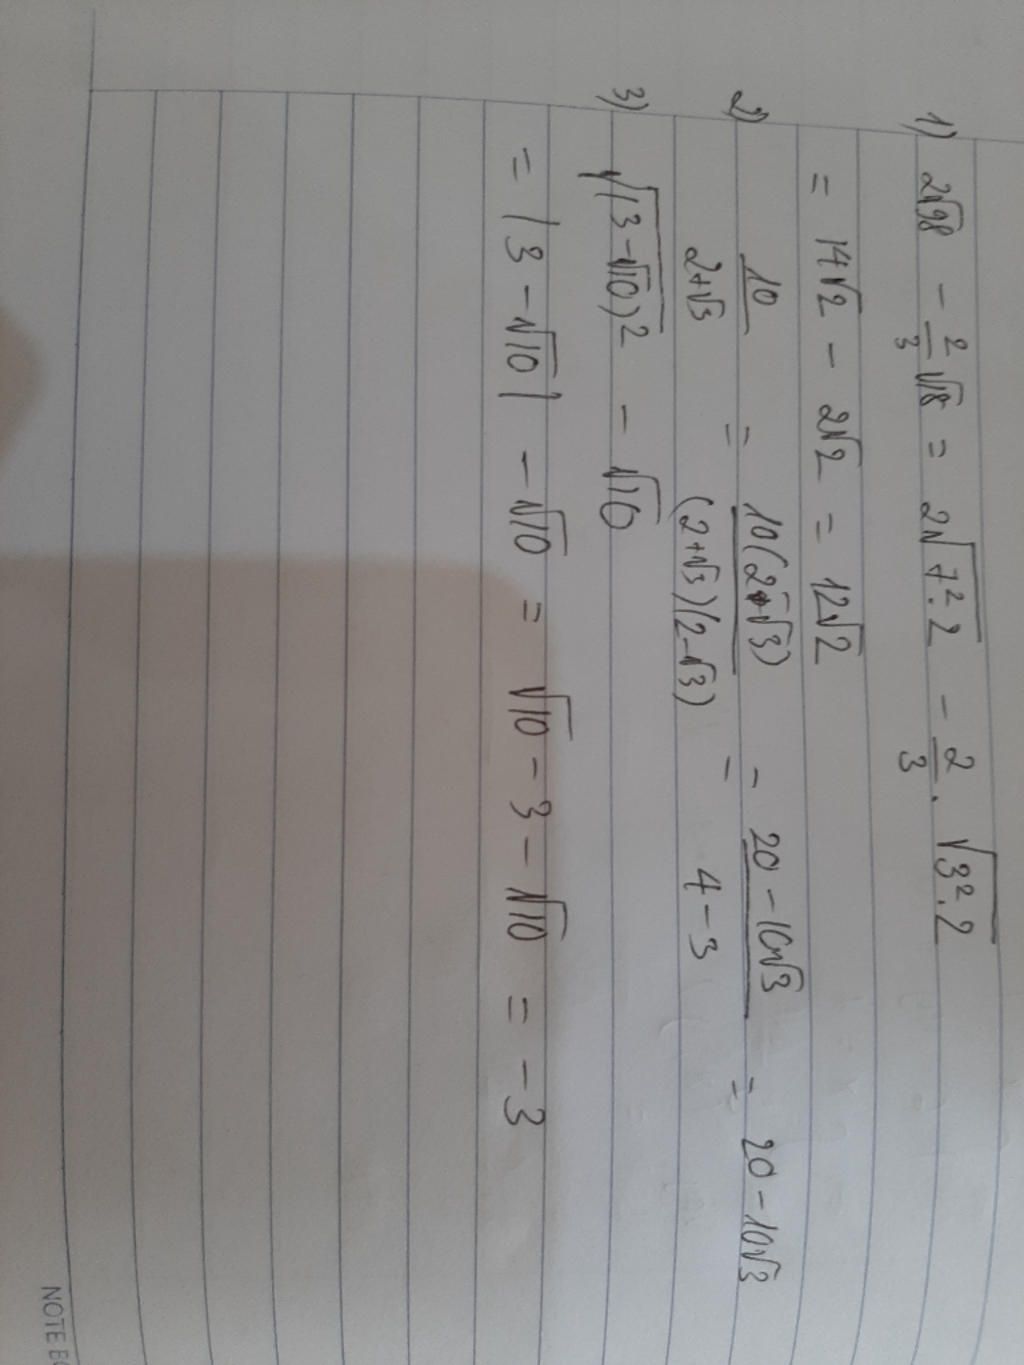 1) 2√98 - 2/3 √18 = 2√(7².2) - 2/3 . √(3².2)
= 14√2 - 2√2 = 12√2
2) 10/(2+√3) = 10(2-√3)/((2+√3)(2-√3)) = (20-10√3)/(4-3) = 20-10√3
3) √((3-√10)²) - √10
= |3-√10| - √10 = √10 - 3 - √10 = -3